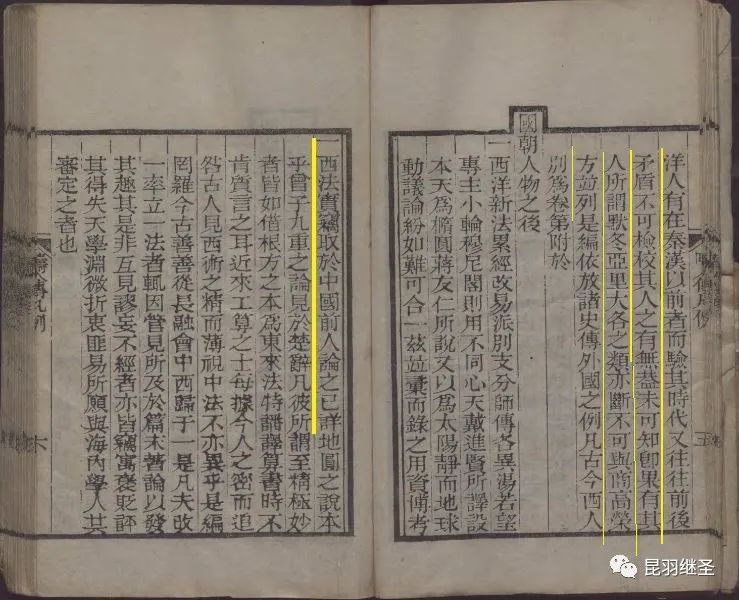 洋人有在秦漢以前者而驗其時代又往往前後
矛盾不可檢校其人之有無蓋未可知卽果有其
人所謂默冬亞里大各之類亦斷不可與商高榮
方並列是編依放諸史傳外國之例凡古今西人
別爲卷第附於
國朝人物之後
一西洋新法累經改易派別支分師傳各異湯若望
專主小輪穆尼閣則用不同心天戴進賢所譯設
本天爲橢圓蔣友仁所說又以爲太陽靜而地球
動議論紛如難可合一茲並彙而錄之用資博考
一西法實竊取於中國前人論之已詳地圓之說本
乎曾子九重之論見於楚辭凡彼所謂至精極妙
者皆如借根方之本爲東來法特譒譯算書時不
肯質言之耳近來工算之士每據今人之密而追
咎古人見西術之精而薄視中法不亦異乎是編
罔羅今古善善從長融會中西歸于一是凡夫改
一率立一法者輒因管見所及於篇末著論以發
其趣其是非互見謬妄不經者亦皆竊寓褒貶評
其得失天學淵微折衷匪易所願與海內學人共
審定之者也
昆羽继圣